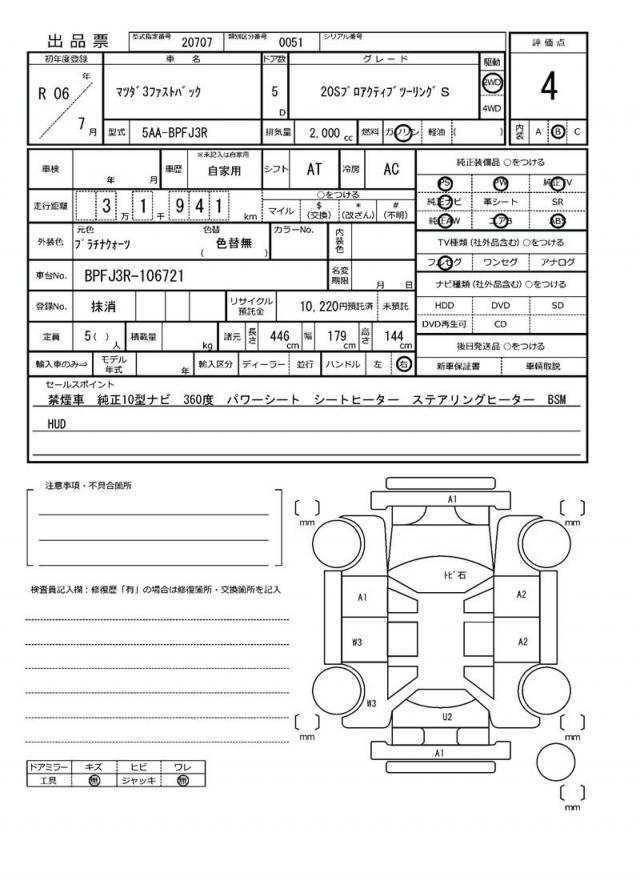 出品票 型式指定番号 20707 類別区分番号 0051 シリアル番号
初年度登録 車名 ドア数 グレード 駆動 評価点
R 06 年 7 月 マツダ3ファストバック 5 D 20SプロアクティブツーリングS 2WD 4WD 4
型式 5AA-BPFJ3R 排気量 2,000 cc 燃料 ガソリン 軽油 ( ) 内装 A B C
車検 年 月 車歴 ※未記入は自家用 自家用 シフト AT 冷房 AC 純正装備品 ○をつける
PS PW 純正TV
走行距離 3 万 1 千 9 4 1 km ○をつける マイル $ (交換) * (改ざん) # (不明) 純正ナビ 革シート SR
純正AW エアB ABS
外装色 元色 プラチナクォーツ 色替 ( 色替無 ) カラーNo. 内装色 TV種類 (社外品含む) ○をつける
フルセグ ワンセグ アナログ
車台No. BPFJ3R-106721 名変期限 月 日 ナビ種類 (社外品含む) ○をつける
登録No. 抹消 リサイクル預託金 10,220円預託済 未預託 HDD DVD SD
DVD再生可 CD
定員 5 ( ) 人 積載量 kg 諸元 長さ 446 cm 幅 179 cm 高さ 144 cm 後日発送品 ○をつける
輸入車のみ⇒ モデル年式 年 輸入区分 ディーラー 並行 ハンドル 左 右 新車保証書 車輌取説
セールスポイント
禁煙車 純正10型ナビ 360度 パワーシート シートヒーター ステアリングヒーター BSM
HUD
注意事項・不具合箇所
検査員記入欄：修復歴「有」の場合は修復箇所・交換箇所を記入
A1
mm mm
トビ石
A1 A2
W3 A2
W3
U2
mm mm
A1
mm
ドアミラー キズ ヒビ ワレ
工具 無 ジャッキ 無